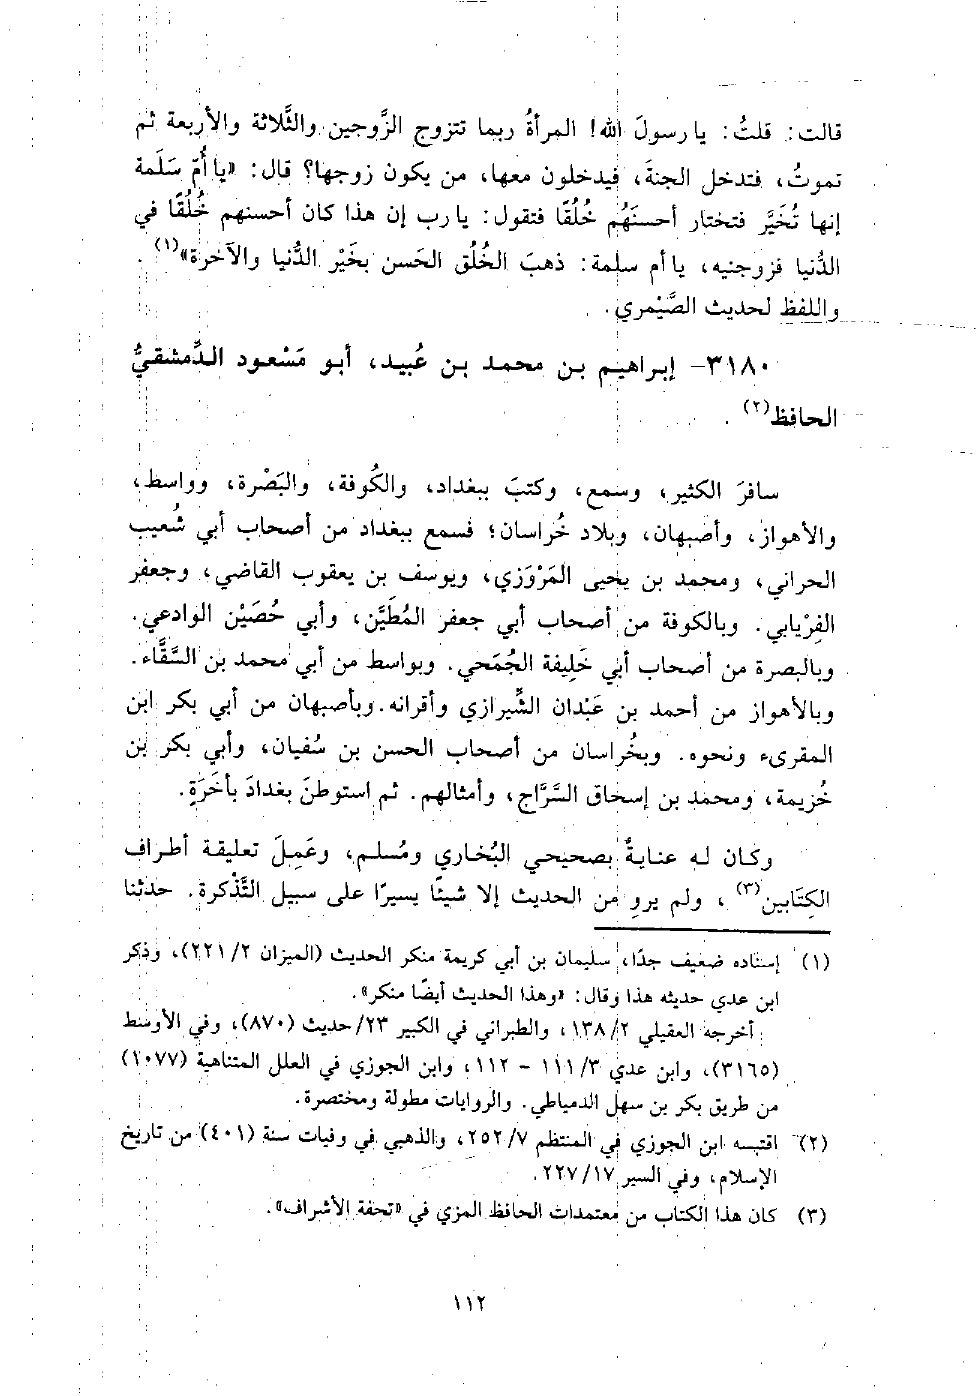 قالت: قلتُ: يا رسولَ الله! المرأةُ ربما تتزوج الزَّوجين والثَّلاثة والأربعة ثم
تموتُ، فتدخل الجنةَ، فيدخلون معها، من يكون زوجها؟ قال: «يا أُمّ سَلَمة
إنها تُخَيَّر فتختار أحسنَهُم خُلُقًا فتقول: يا رب إن هذا كان أحسنهم خُلُقًا في
الدُّنيا فزوجنيه، يا أم سلمة: ذهبَ الخُلُق الحَسن بخَيْر الدُّنيا والآخرة»(١).
واللفظ لحديث الصَّيْمري.
٣١٨٠- إبراهيم بن محمد بن عُبيد، أبو مَسْعود الدِّمشقيُّ
الحافظ(٢).
سافرَ الكثير، وسمع، وكتبَ ببغداد، والكُوفة، والبَصْرة، وواسط،
والأهواز، وأصبهان، وبلاد خُراسان؛ فسمع ببغداد من أصحاب أبي شُعيب
الحراني، ومحمد بن يحيى المَرْوَزي، ويوسف بن يعقوب القاضي، وجعفر
الفِرْيابي. وبالكوفة من أصحاب أبي جعفر المُطَيَّن، وأبي حُصَيْن الوادعي.
وبالبصرة من أصحاب أبي خَلِيفة الجُمَحي. وبواسط من أبي محمد بن السَّقَّاء.
وبالأهواز من أحمد بن عَبْدان الشِّيرازي وأقرانه. وبأصبهان من أبي بكر ابن
المقرىء ونحوه. وبخُراسان من أصحاب الحسن بن سُفيان، وأبي بكر بن
خُزيمة، ومحمد بن إسحاق السَّرَّاج، وأمثالهم. ثم استوطنَ بغدادَ بأخَرَةٍ.
وكان له عنايةٌ بصحيحي البُخاري ومُسلم، وعَمِلَ تعليقة أطراف
الكِتَابين(٣)، ولم يروِ من الحديث إلا شيئًا يسيرًا على سبيل التَّذْكرة. حدثنا
(١) إسناده ضعيف جدًا، سليمان بن أبي كريمة منكر الحديث (الميزان ٢/ ٢٢١)، وذكر
ابن عدي حديثه هذا وقال: «وهذا الحديث أيضًا منكر».
أخرجه العقيلي ٢/ ١٣٨، والطبراني في الكبير ٢٣/ حديث (٨٧٠)، وفي الأوسط
(٣١٦٥)، وابن عدي ٣/ ١١١ - ١١٢، وابن الجوزي في العلل المتناهية (١٠٧٧)
من طريق بكر بن سهل الدمياطي. والروايات مطولة ومختصرة.
(٢) اقتبسه ابن الجوزي في المنتظم ٧/ ٢٥٢، والذهبي في وفيات سنة (٤٠١) من تاريخ
الإسلام، وفي السير ١٧/ ٢٢٧.
(٣) كان هذا الكتاب من معتمدات الحافظ المزي في «تحفة الأشراف».
١١٢